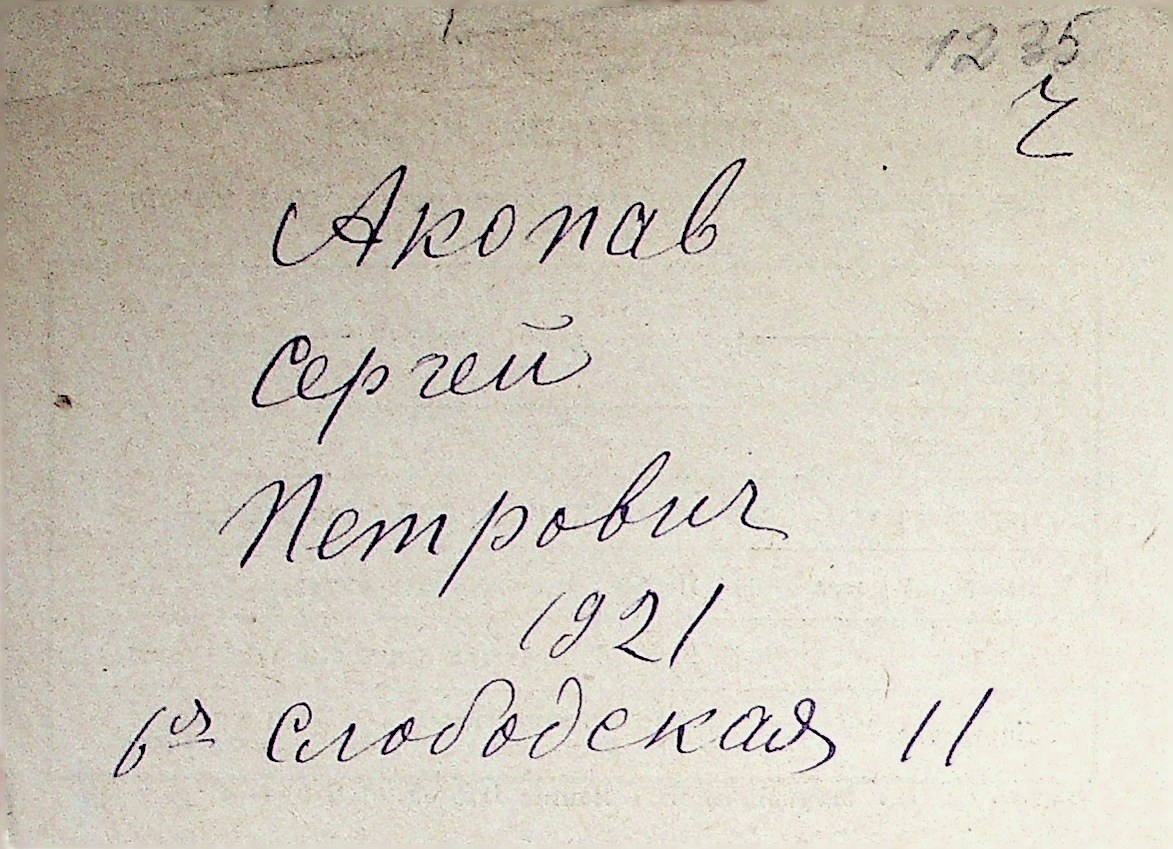 1235
Акопав
Сергей
Петрович
1921
6ая Слободская 11